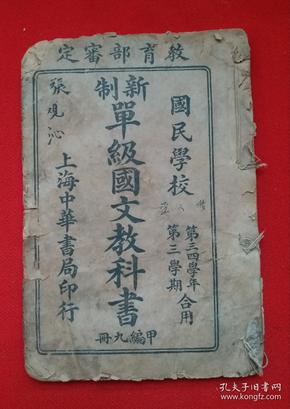 教育部審定
國民學校
第三四學年
第三學期
合用
新制
單級國文教科書
甲編九冊
上海中華書局印行
張觀沁
孔夫子旧书网